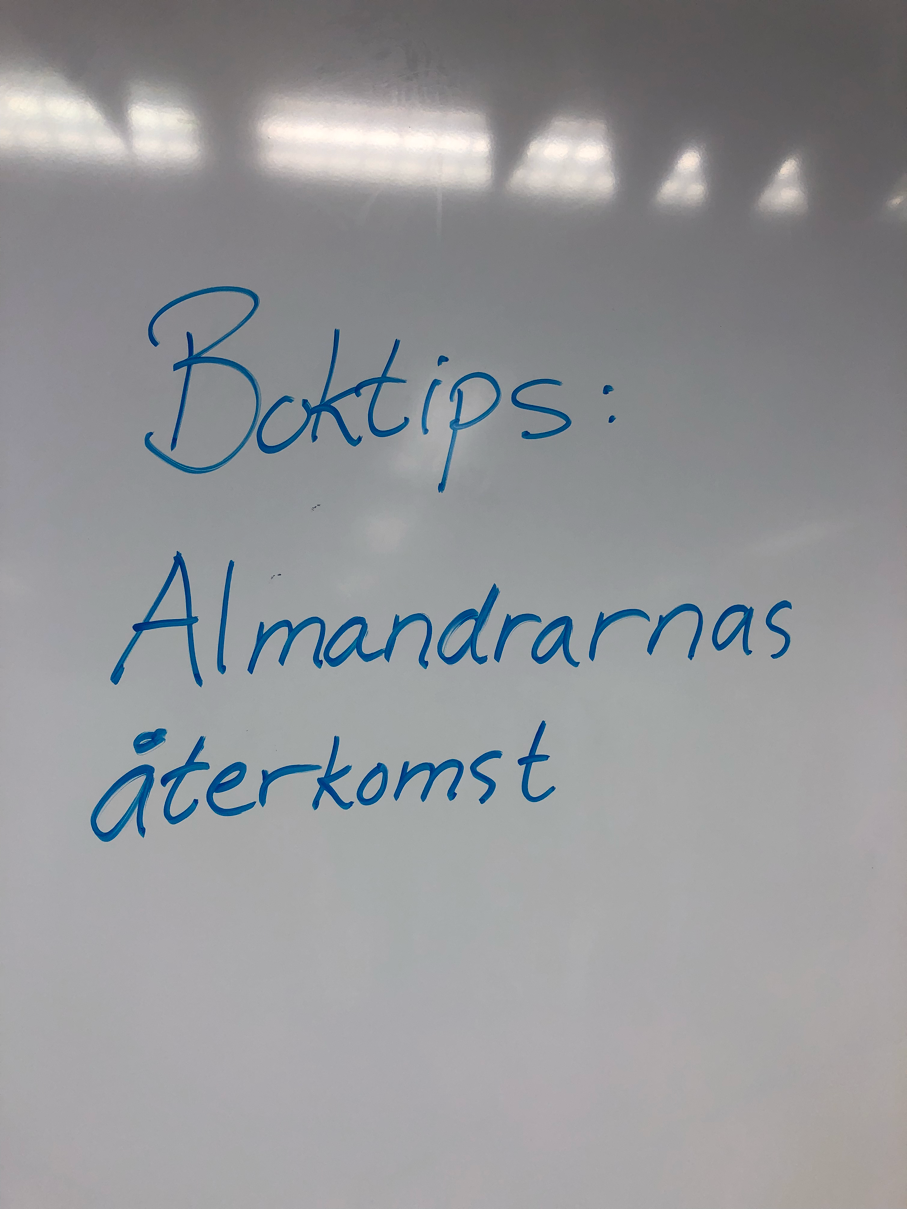 Boktips:
Almandrarnas
återkomst